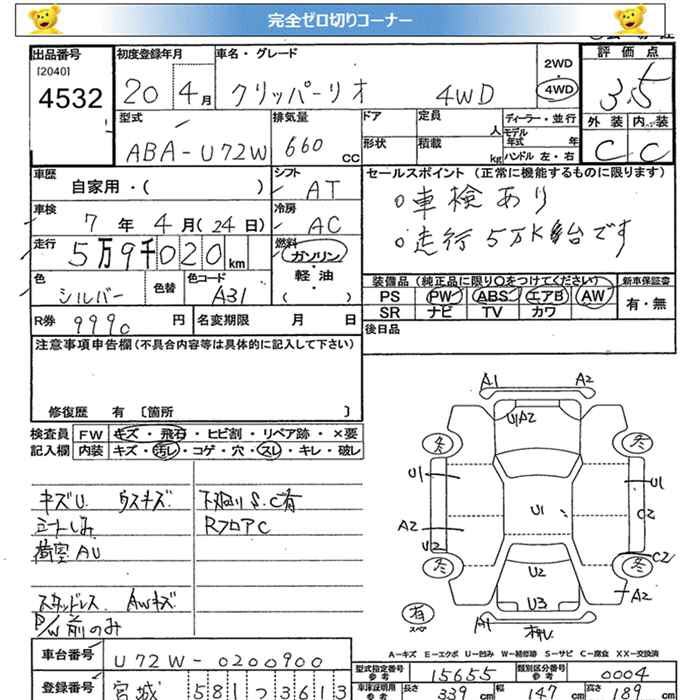 完全ゼロ切りコーナー
出品番号 [2040] 4532
初度登録年月 20 4月
車名・グレード クリッパーリオ 4WD
2WD 4WD
評価点 3.5
外装 内装
C C
型式 ABA-U72W
排気量 660 CC
ドア 定員 人
形状 積載 kg
ディーラー・並行
モデル年式 年
ハンドル 左・右
車歴 自家用・( )
シフト AT
セールスポイント (正常に機能するものに限ります)
○車検あり
○走行5万K台です
車検 7年 4月(24日)
冷房 AC
走行 5万9千020km
燃料 ガソリン・軽油・( )
色 シルバー 色替 色コード A31
装備品 (純正品に限り○をつけてください) 新車保証書
PS PW ABS エアB AW 有・無
SR ナビ TV カワ
R券 9990円 名変期限 月 日
後日品
注意事項申告欄(不具合内容等は具体的に記入して下さい)
修復歴 有 [箇所 ]
検査員 FW キズ・飛石・ヒビ割・リペア跡・×要
記入欄 内装 キズ・汚レ・コゲ・穴・スレ・キレ・破レ
キズU ウスキズ 下廻り S.C有
シートしみ RフロアC
AU
スタッドレス AWキズ
P/W前のみ
A1 A2
U1A2
冬 冬
U1 U1
U1
A2 C2
U2 C2
冬 冬
U2
A2
U3
有 A1
A-キズ E-エクボ U-凹み W-補修跡 S-サビ C-腐食 XX-交換済
車台番号 U72W-0200900
型式指定番号 参考 15655 類別区分番号 参考 0004
登録番号 宮城 581 つ 3613
車庫証明用 参考 長さ 339 cm 幅 147 cm 高さ 189 cm